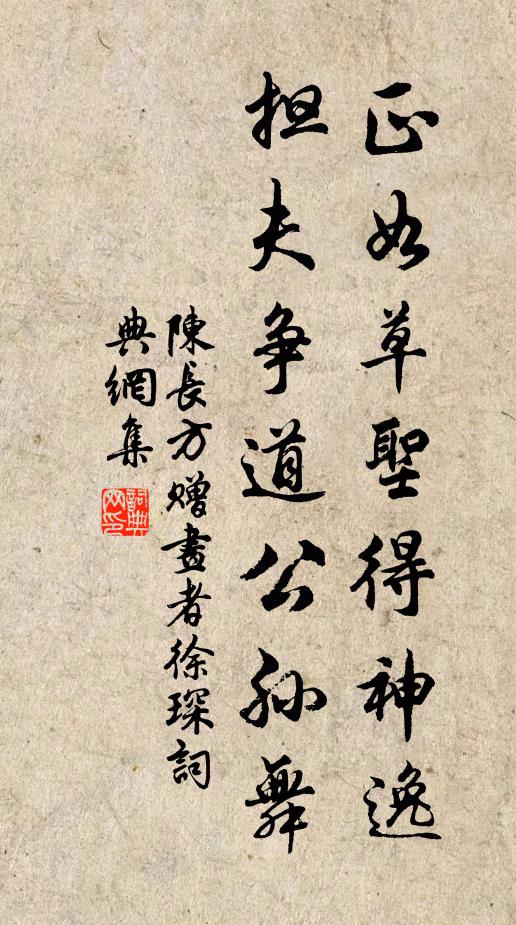 正如草聖得神逸
担夫争道公孫舞
陳長方贈畫者徐琛詞
典網集
詞典網印